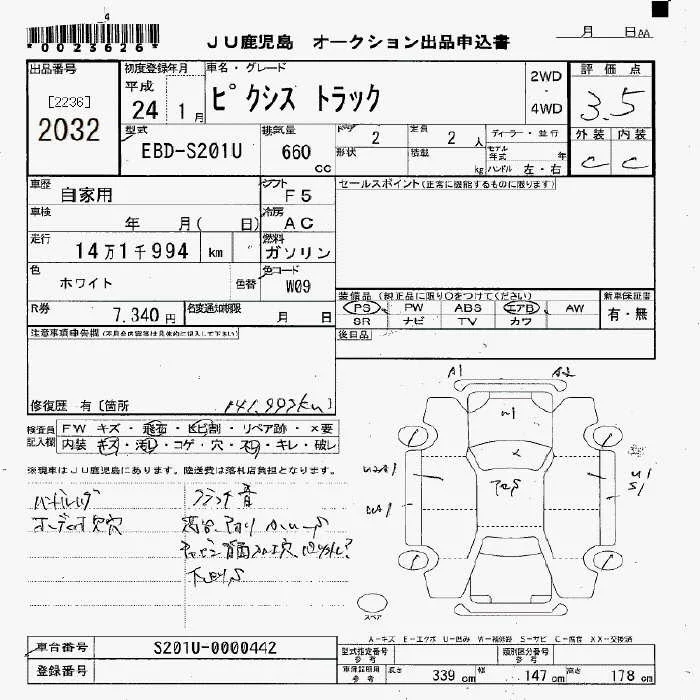 *0023626*
JU鹿児島 オークション出品申込書
月 日AA
出品番号
[2236]
2032
初度登録年月
平成
24 1月
車名・グレード
ピクシス トラック
2WD
・
4WD
評価点
3.5
外装 内装
C C
型式
EBD-S201U
排気量
660
cc
ドア
2
定員
2 人
形状
積載
kg
ディーラー・並行
モデル年式 年
ハンドル 左・右
車歴
自家用
シフト
F5
車検
年 月( 日)
冷房
AC
走行
14万1千994 km
燃料
ガソリン
色
ホワイト
色替
色コード
W09
R券
7,340円
名変通知期限
月 日
セールスポイント(正常に機能するものに限ります)
装備品(純正品に限り○をつけてください)
PS PW ABS エアB AW
SR ナビ TV カワ
新車保証書
有・無
後日品
注意事項申告欄
修復歴 有〔箇所
検査員記入欄
FW キズ・飛石・ヒビ割・リペア跡・×要
内装・キズ・汚レ・コゲ・穴・スレ・キレ・破レ
※現車はJU鹿児島にあります。陸送費は落札店負担となります。
A1 A2
スペア
A-キズ E-エクボ U-凹み W-補修跡 S-サビ C-腐食 XX-交換済
車台番号
S201U-0000442
登録番号
型式指定番号
参考
類別区分番号
参考
車検証記載
参考
長さ 339 cm 幅 147 cm 高さ 178 cm